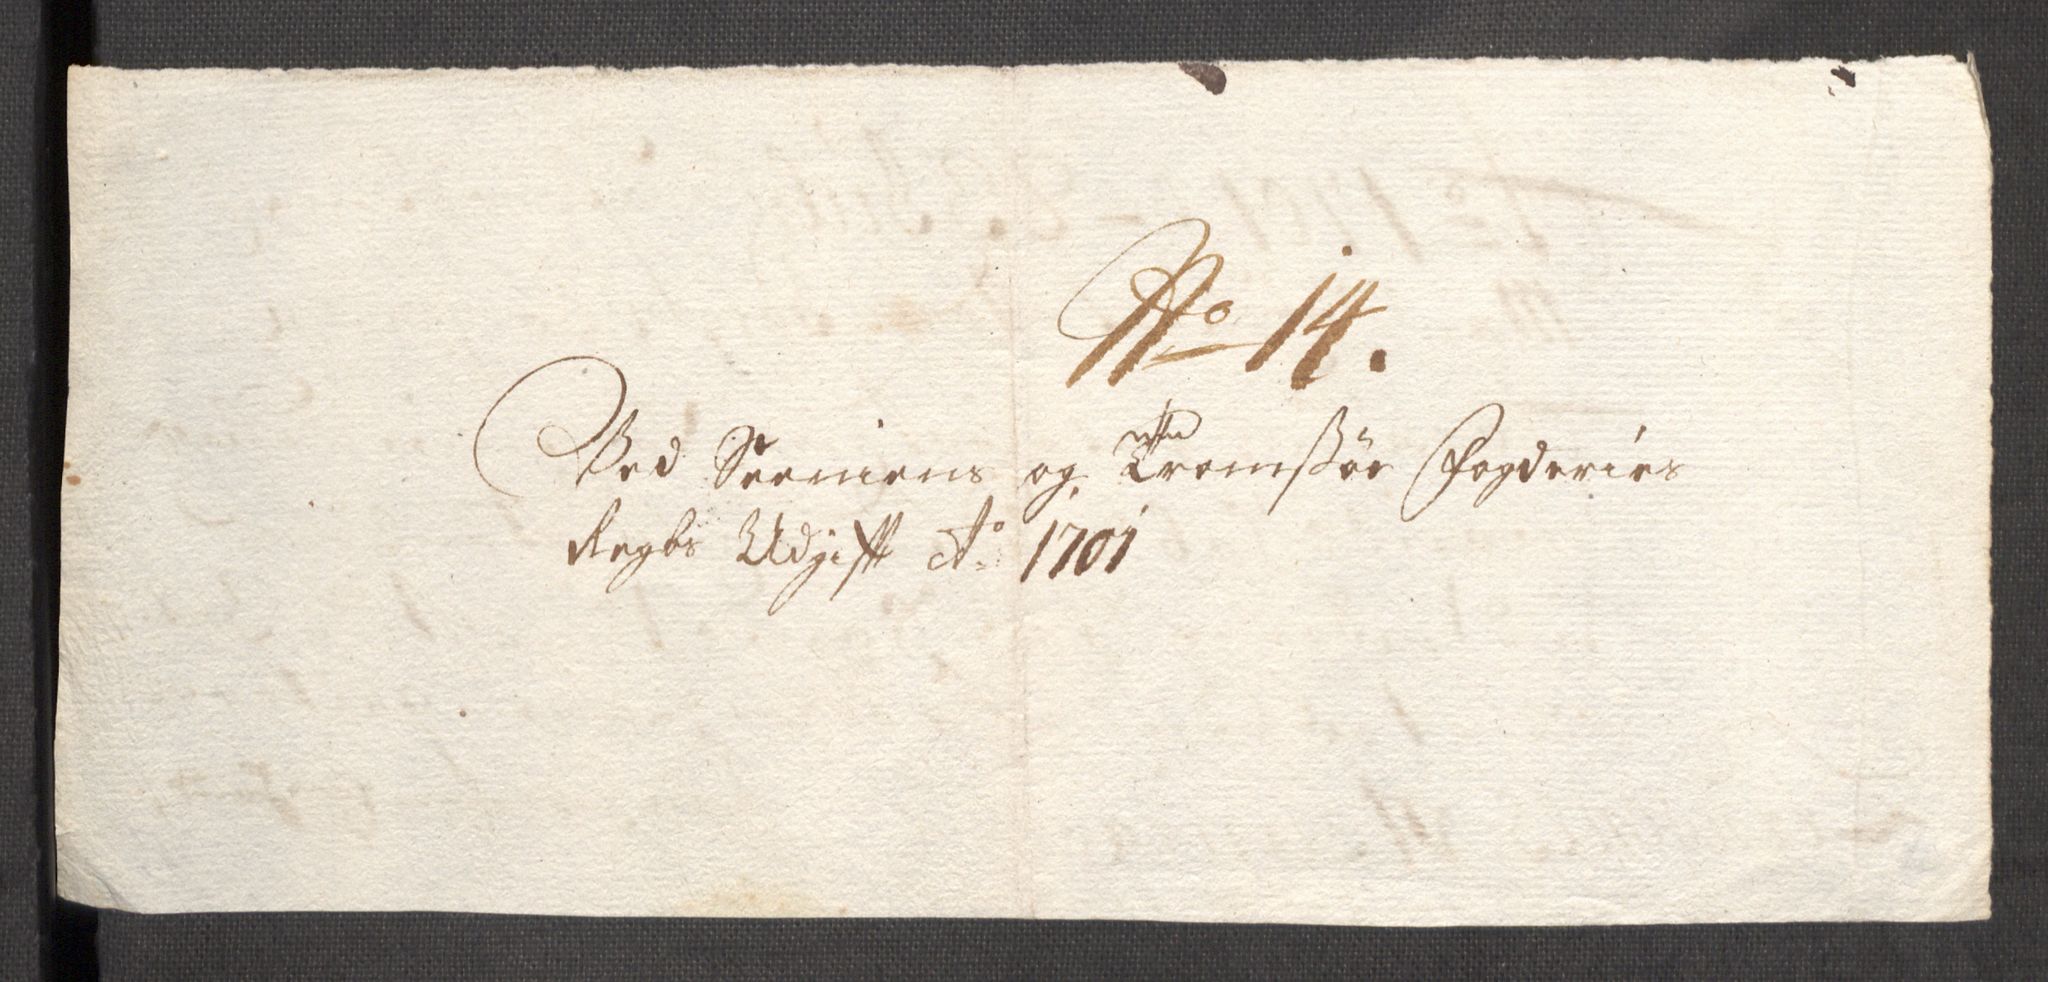 No 14.
Ved Senniens og Tromsøe Fogderies
Regbs Udgifft Ao 1701